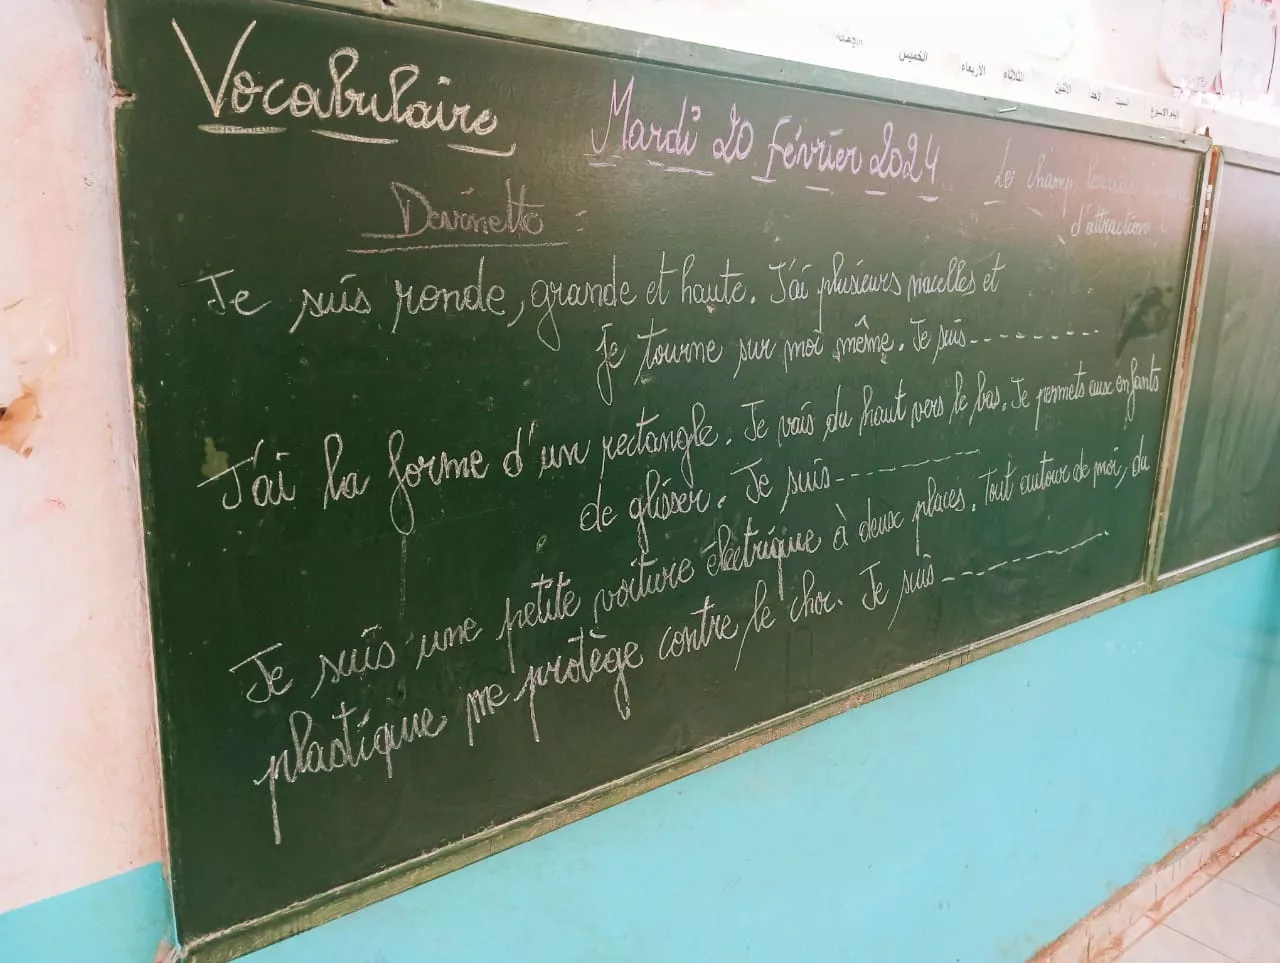 الجمعة الخميس الأربعاء الثلاثاء الاثنين الأحد السبت
Vocabulaire
Mardi 20 février 2024
Le champ lexical
d'attraction
Devinette
Je suis ronde, grande et haute. J'ai plusieurs nacelles et
je tourne sur moi même. Je suis---------
J'ai la forme d'un rectangle. Je vais du haut vers le bas. Je permets aux enfants
de glisser. Je suis----------
Je suis une petite voiture électrique à deux places. Tout autour de moi, du
plastique me protège contre le choc. Je suis-----------